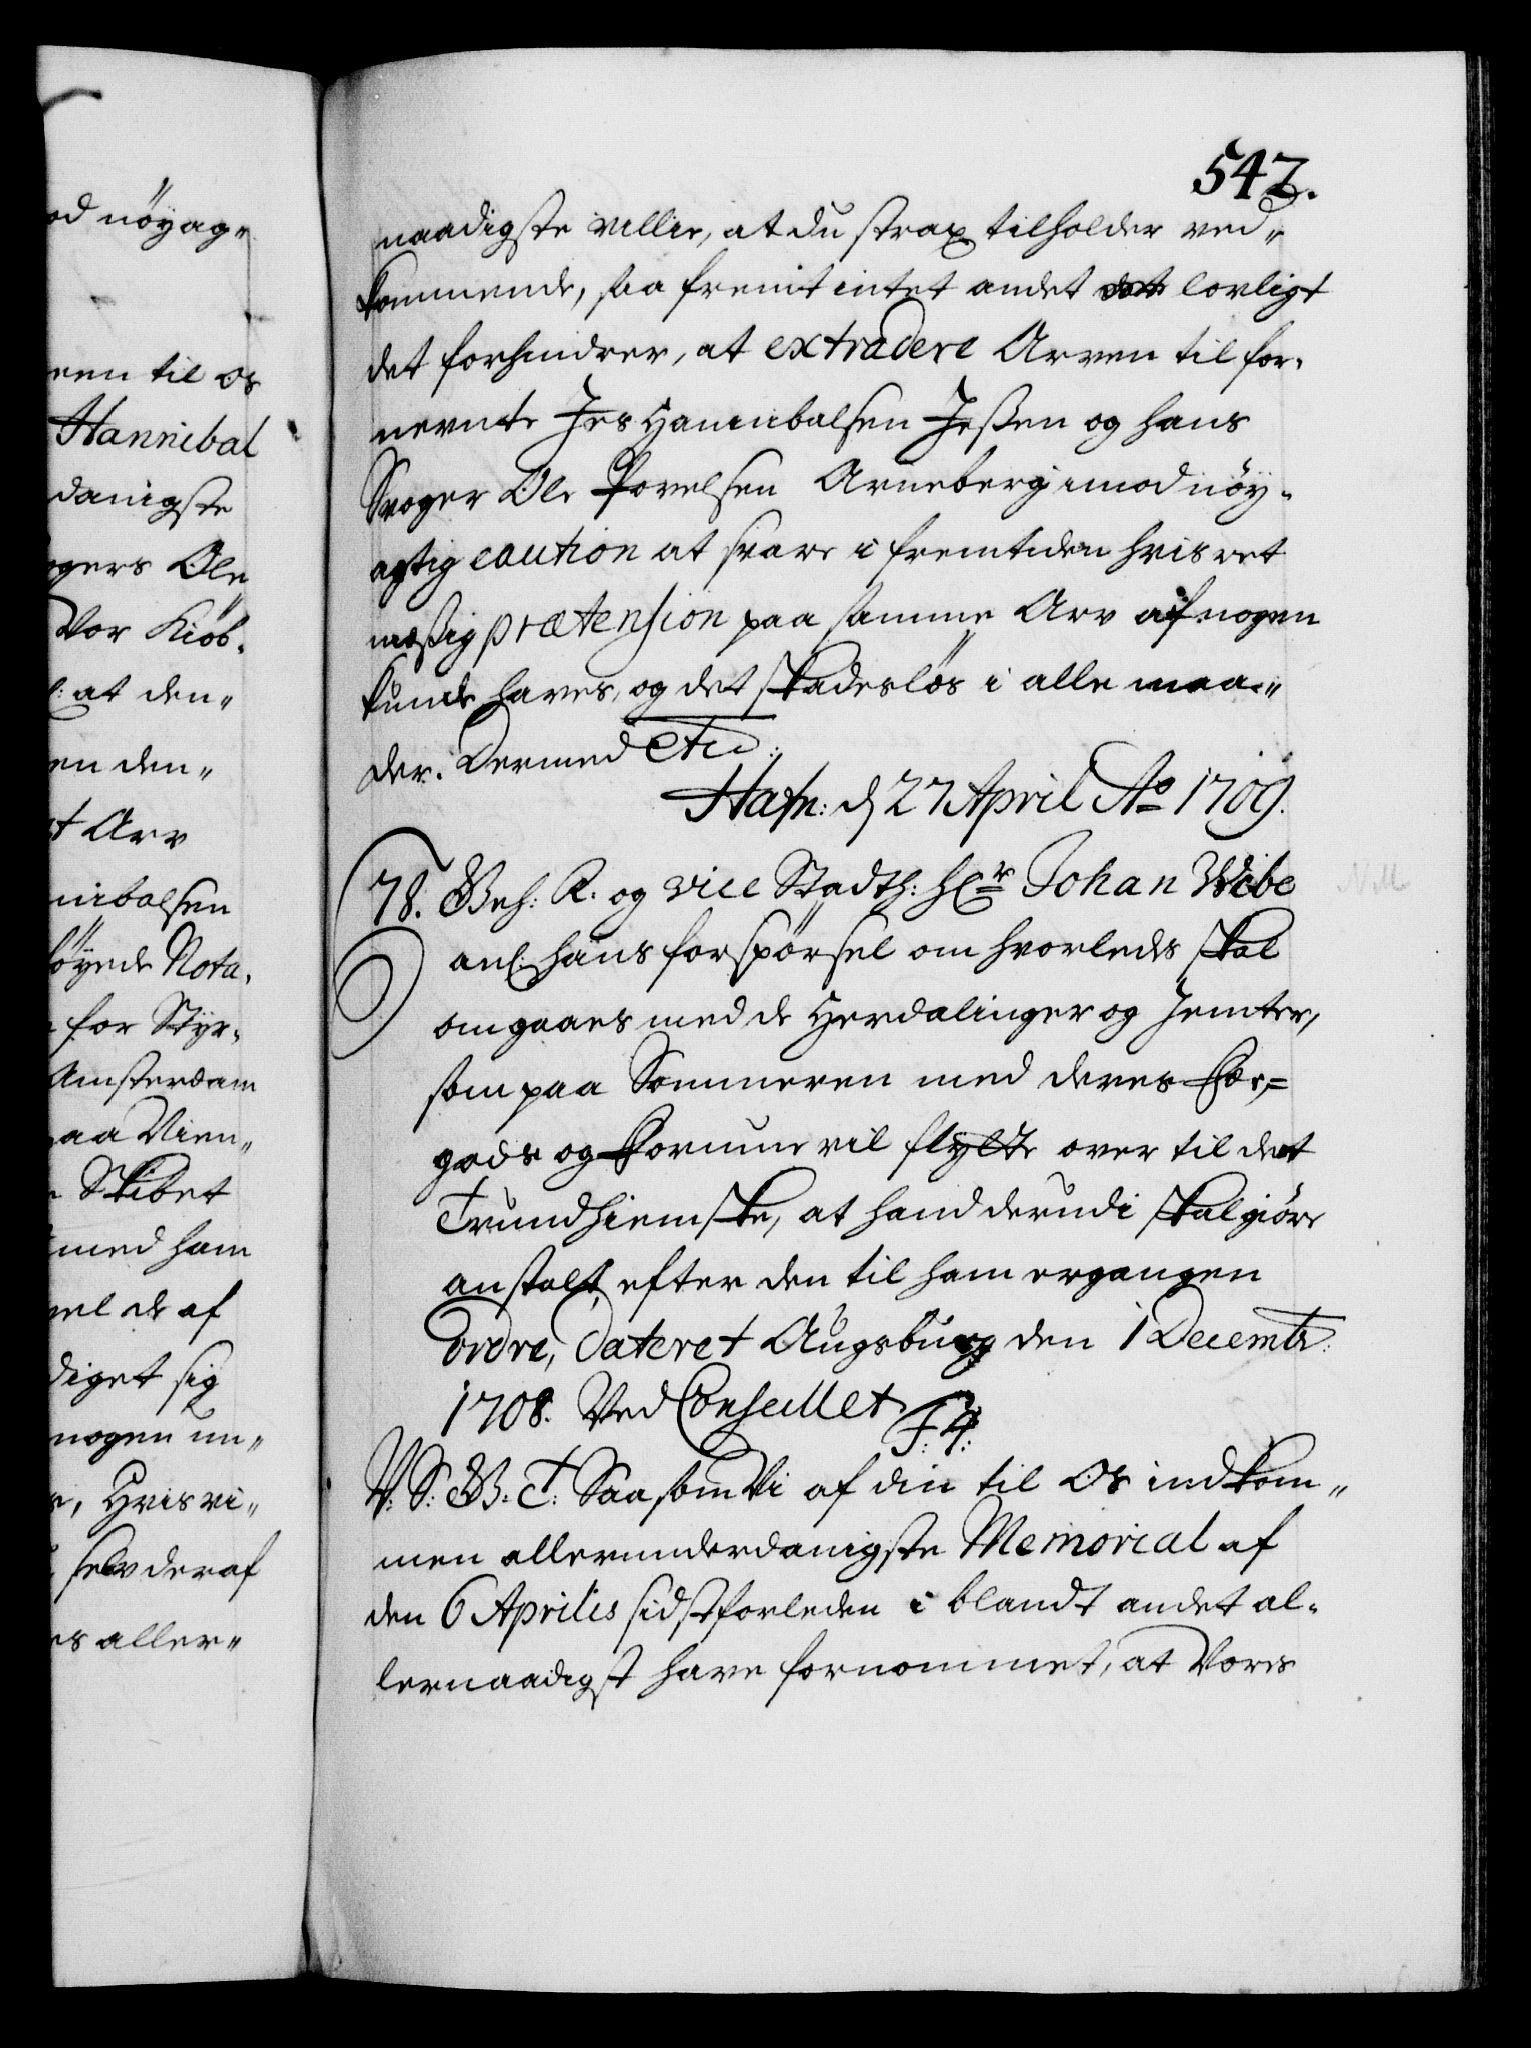 542.
od nöyag„
een til os
Hannibal
danigste
ogers Ole
Vor Kiöb.
l: at den„
en den„
t Arv
nibalsen
öyede Nota.
for Skyr.
Amsterdam
aa Vien„
Skibet
med ham
vel de af
diget sig
nogen un„
r, Hvis vi„
selv deraf
es aller„
naadigste villie, at du strax tilholder ved„
kommende, saa fremt intet andet lovligt
det forhindrer, at extradere Arven til for.
nevnte Jes Hannibalsen Jessen og hans
Svoger Ole Povelsen Arneberg imod nöy.
agtig caution at svare i fremtiden hvis ret
mæssig prætension paa samme Arv af nogen
kunde haves, og det skadeslös i alle maa„
der. Dermed etc:
Hafn: d 27 April Ao 1709.
78. Geh: R. og vice Stadth: Hr Johan Wibe
anl: hans forspörsel om hvorledes skal
omgaaes med de Herdalinger og Jemter,
som paa Sommeren med deres Bor,=
gods og Formue vil flytte over til det
Trundhiemske, at hand derudi skal giöre
anstalt efter den til ham ergangen
Ordre, Dateret Augsburg den 1 Decembr:
1708. Ved Conseillet
F: 4:
V: S: G. T: Saasom Vi af din til Os indkom„
men allerunderdanigste Memorial af
den 6 Aprilis sidstforleden i blandt andet al.
lernaadigst have fornommet, at Vores